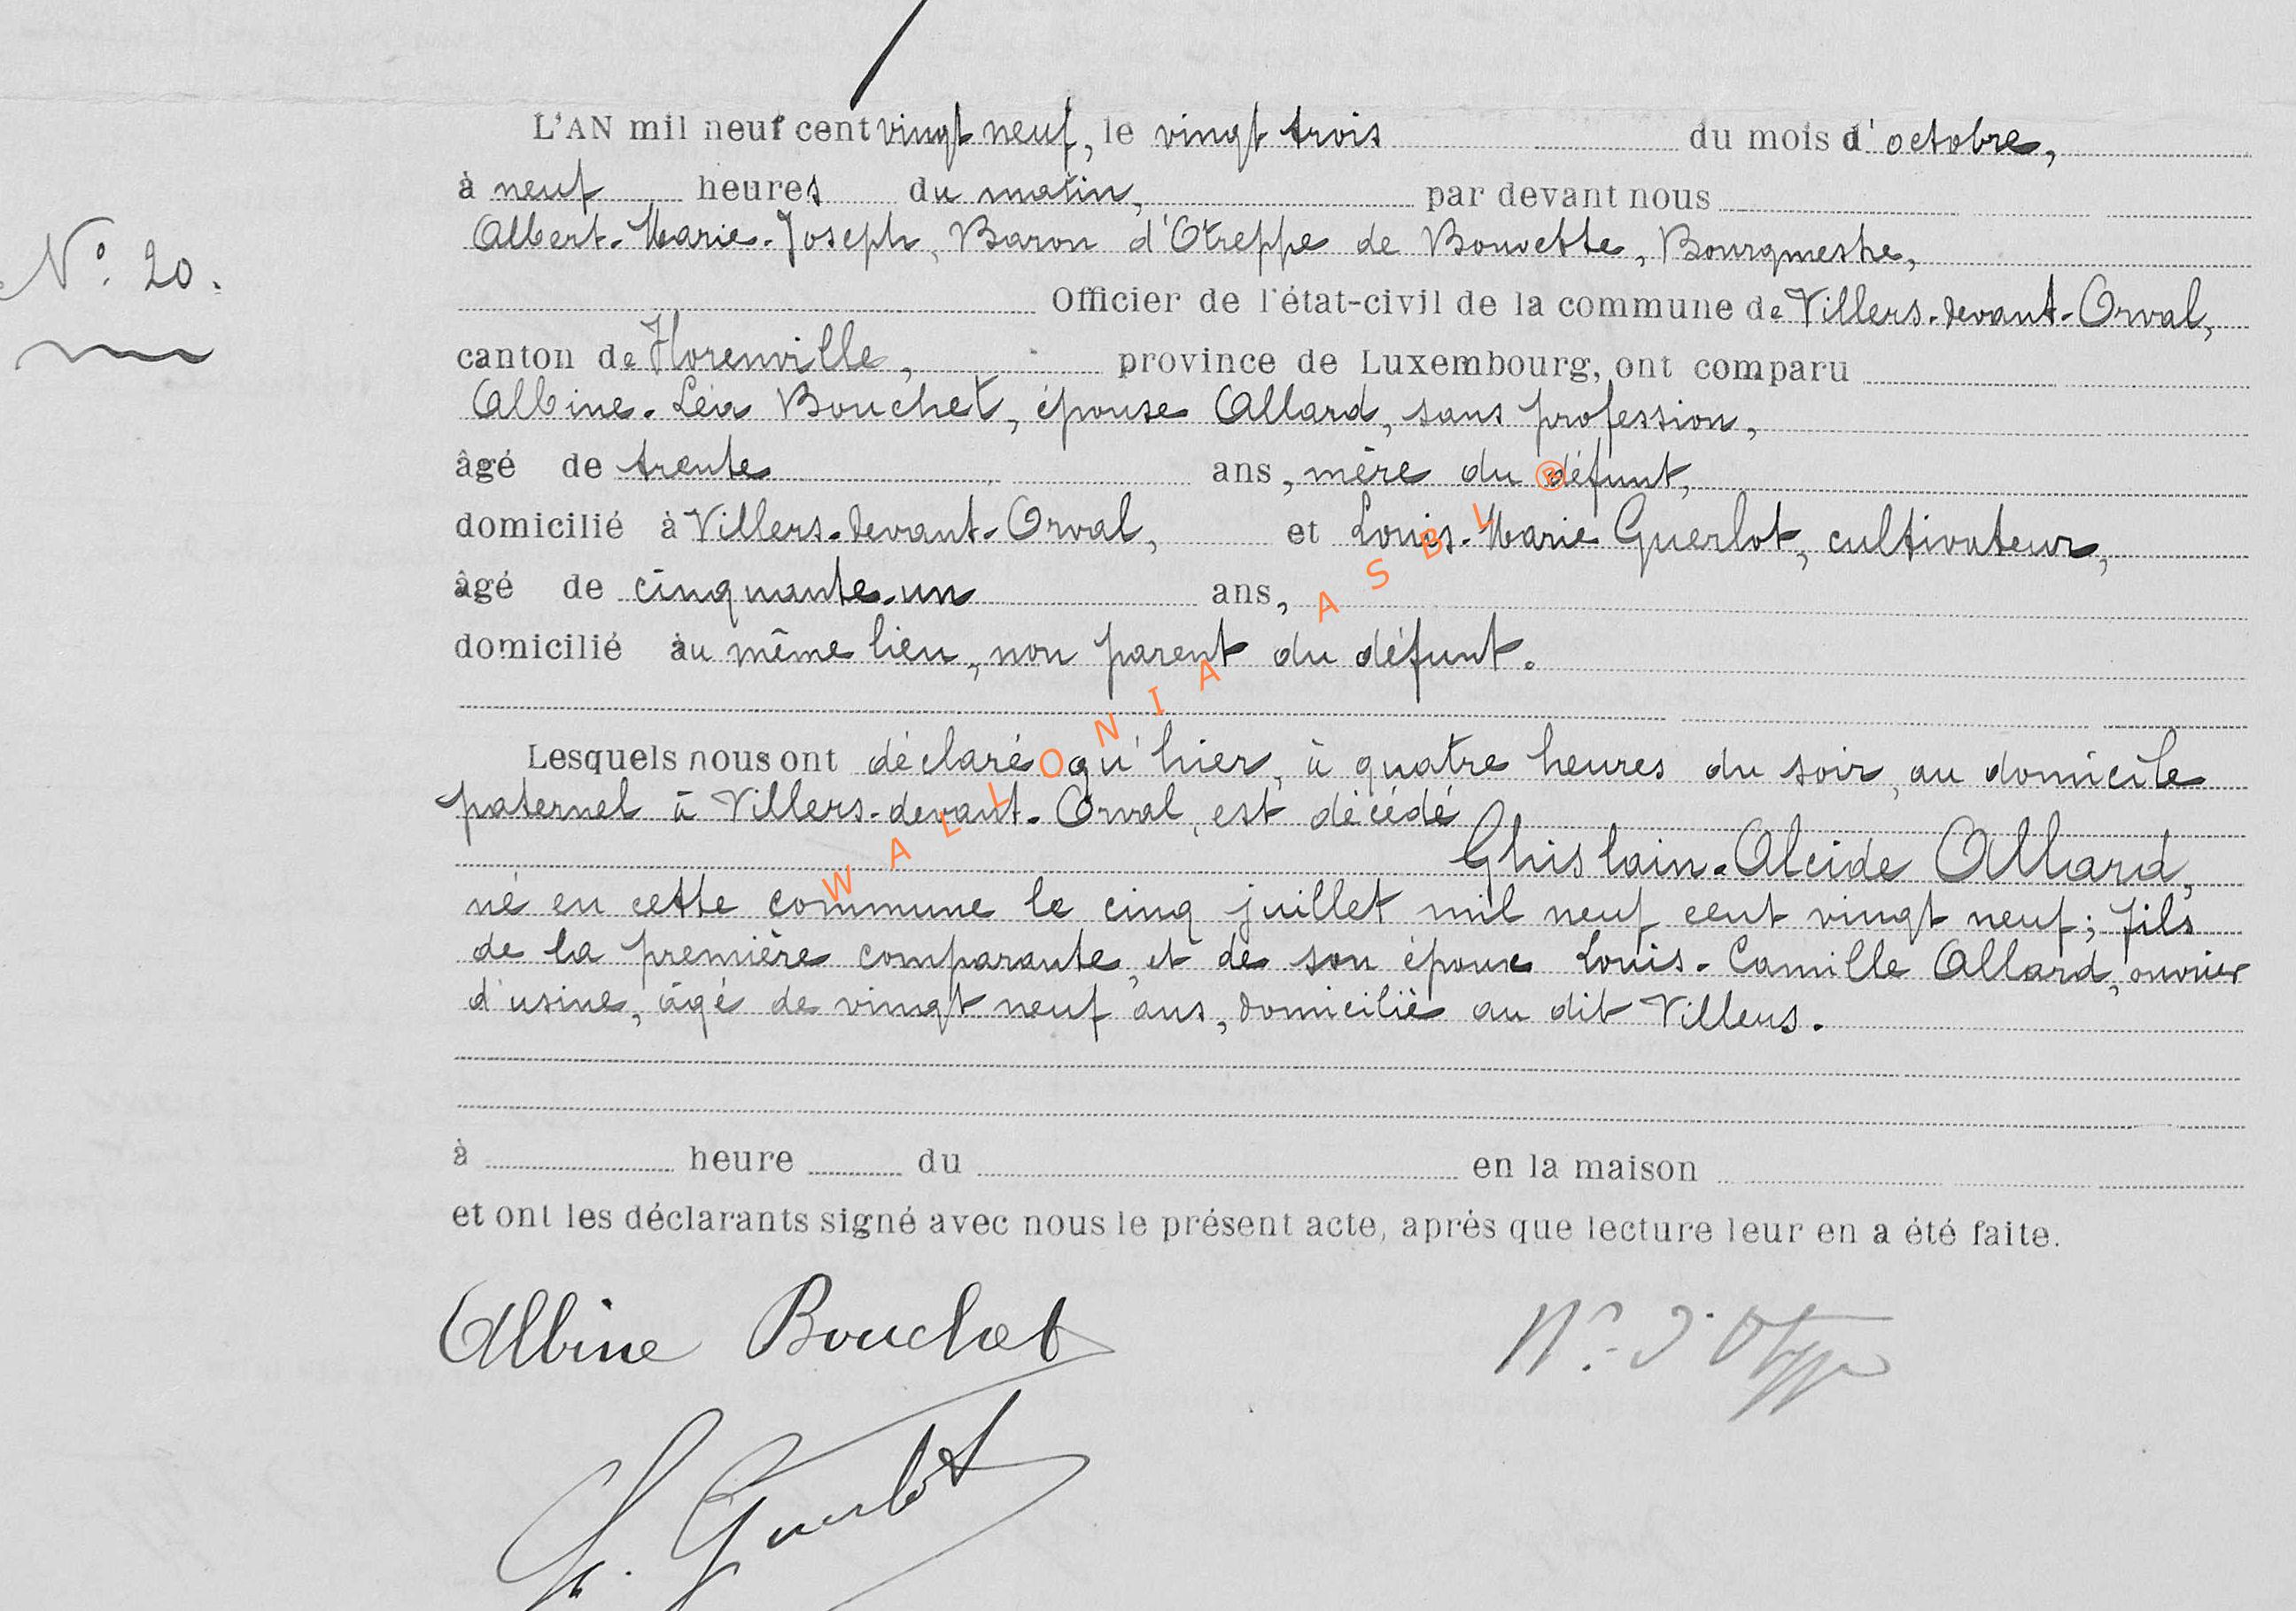 L'AN mil neuf cent vingt neuf, le vingt trois du mois d'octobre,
à neuf heures du matin, par devant nous
Albert-Marie-Joseph, Baron d'Otreppe de Bouvette, Bourgmestre,
N° 20.
Officier de l'état-civil de la commune de Villers-devant-Orval,
canton de Florenville, province de Luxembourg, ont comparu
Albine-Léa Bouchet, épouse Allard, sans profession,
âgé de trente ans, mère du défunt,
domicilié à Villers-devant-Orval, et Louis-Marie Guerlot, cultivateur,
âgé de cinquante-un ans,
domicilié au même lieu, non parent du défunt.
Lesquels nous ont déclaré qu'hier, à quatre heures du soir, au domicile
paternel à Villers-devant-Orval, est décédé
Ghislain-Alcide Allard,
né en cette commune le cinq juillet mil neuf cent vingt neuf; fils
de la première comparante, et de son époux Louis-Camille Allard, ouvrier
d'usine, âgé de vingt neuf ans, domicilié au dit Villers.
à heure du en la maison
et ont les déclarants signé avec nous le présent acte, après que lecture leur en a été faite.
Albine Bouchet
Guerlot
WALLONIA ASBL ®